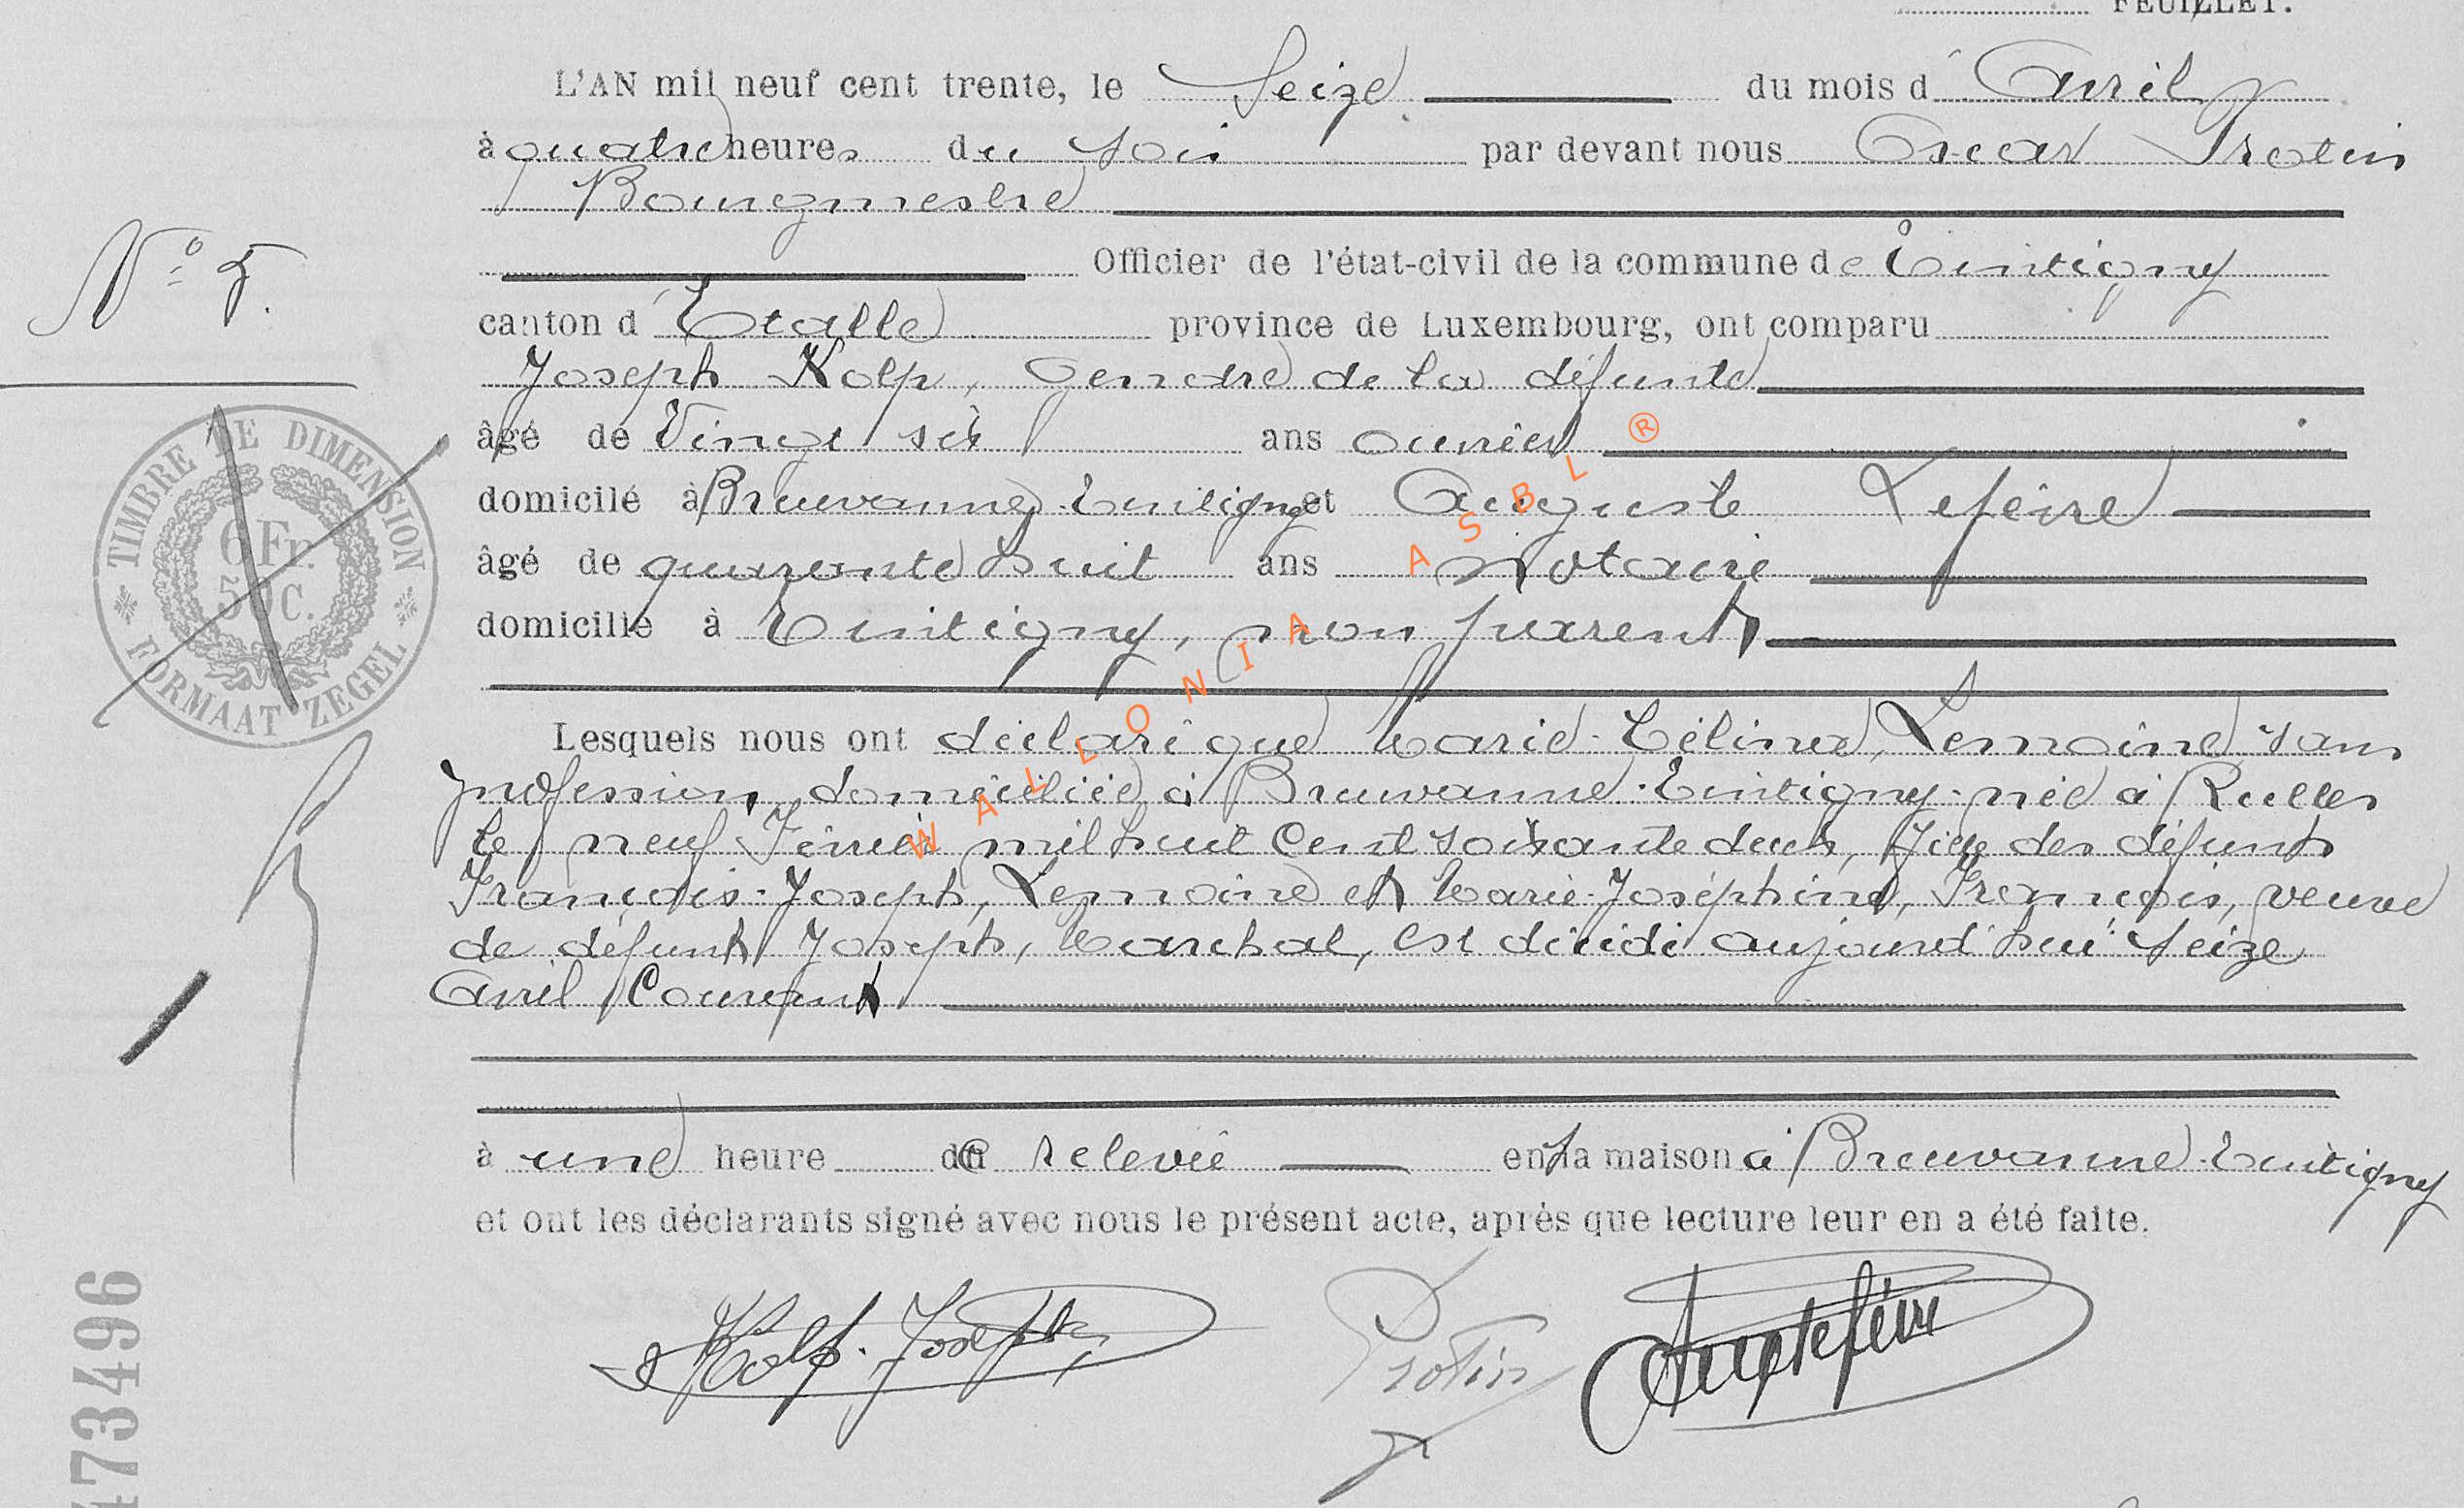 FEUILLET.
L'AN mil neuf cent trente, le Seize du mois d'Avril
à quatre heures du soir par devant nous Oscar Protin
Bourgmestre
N° 5. Officier de l'état-civil de la commune de Tintigny
canton d'Etalle province de Luxembourg, ont comparu
Joseph Kolp, Gendre de la défunte
âgé de Vingt six ans ouvrier
domicilé à Breuvanne-Tintigny et Auguste Lefèvre
âgé de quarante huit ans Notaire
domicilié à Tintigny, non parents
Lesquels nous ont déclaré que Marie-Céline, Lemoine, sans
profession, domiciliée à Breuvanne-Tintigny née à Rulles
le neuf Février mil huit Cent soixante deux, fille des défunts
François-Joseph, Lemoine et Marie-Joséphine, François, veuve
de défunt Joseph, Marchal, est décédé aujourd'hui Seize
Avril Courant
à une heure de relevée en sa maison à Breuvanne-Tintigny
et ont les déclarants signé avec nous le présent acte, après que lecture leur en a été faite.
Kolp. Joseph Protin Aug Lefèvre
TIMBRE DE DIMENSION
6 Fr.
50 C.
FORMAAT ZEGEL
473496
WALLONIA ASBL ®